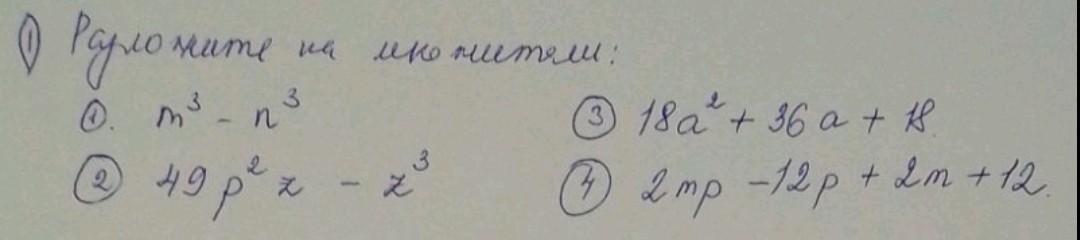 ① Разложите на множители:
①. m³ - n³ ③ 18a² + 36a + 18.
② 49p²z - z³ ④ 2mp - 12p + 2m + 12.